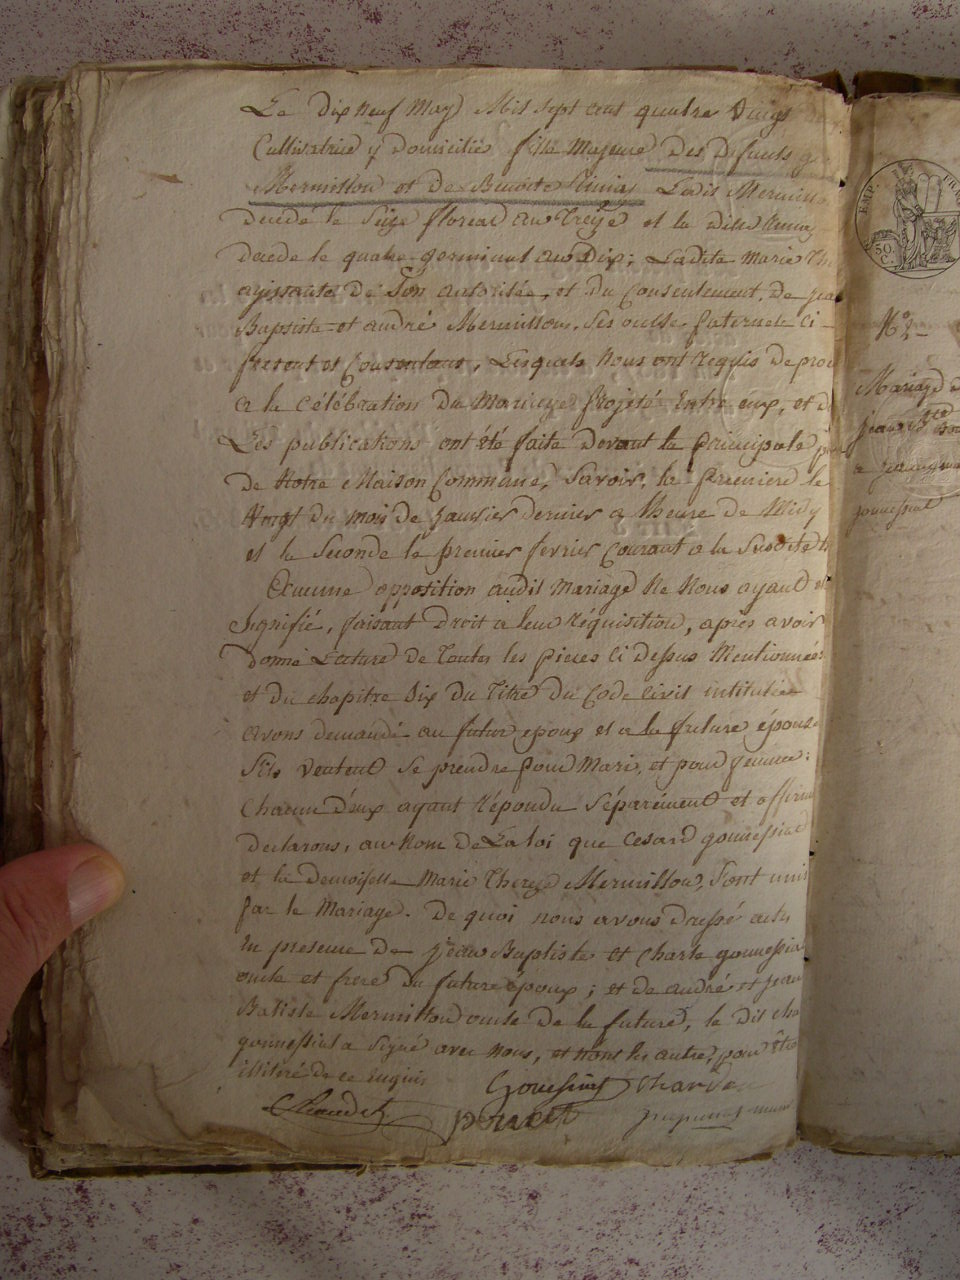 Le dix neuf May Mil Sept cent quatre Vingt
Cultivatrice y domiciliée fille Majeure des defunts
Mermillon et de Benoite Ladit
decedé le Seize floreal an treize et la dite
decede le quatre germinal an Dix; Ladite Marie
agissante de Son autoritée, et du Consentement, de
Baptiste et andré Mermillon, Ses oncle paternele ci
present et Consentant, Lesquels Nous ont Requis de
a la Célébration du Mariage projeté Entre eux, et
Les publications ont été faite devant la principale
de Notre Maison Commune, Savoir, la premiere le
Vingt du mois de janvier dernier a lheure de Midy
et la Seconde le premier fevrier Courant a la Susdite
Aucune opposition audit Mariage Ne Nous ayant
Signifié, faisant Droit a leur Réquisition, après avoir
donné Lecture de Toutes les pieces Ci dessus Mentionnées
et du chapitre Six du Titre du Code Civil intitulée
avons demandé au futur epoux et a la future épouse
Sils veulent se prendre pour Mari, et pour femme:
Chacun d'eux ayant Répondu Séparément et
declarons, au Nom de La loi que Cesard gonnessiat
et la demoiselle Marie Therese Mermillon, Sont unis
par le Mariage. De quoi nous avons Dressé acte
En presence De jean Baptiste et Charle gonnessiat
oncle et frere du future époux; et de andré et jean
Batiste Mermillon oncle de la future, le dit
gonnessiat a Signé avec Nous, et non les autre, pour être
illitéré de ce Enquis
EMP. FRAN
50 C.
N°
Mariage
jean
a
gonnessiat